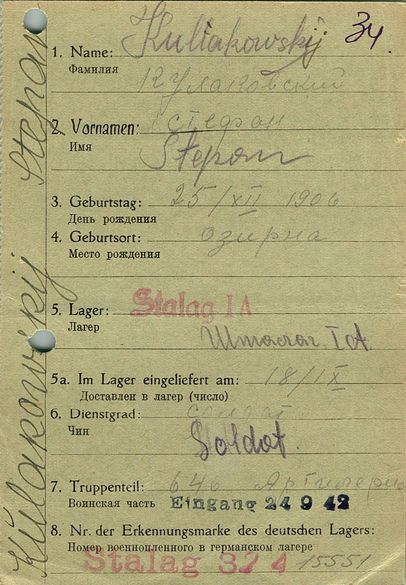 34
1. Name: Kuliakowskij
Фамилия
Кулаковский
2. Vornamen: Стефан
Имя
Stepan
3. Geburtstag: 25/XII 1906
День рождения
4. Geburtsort: Озирна
Место рождения
5. Lager: Stalag IA
Лагер
Шталаг IA
5a. Im Lager eingeliefert am: 18/IX
Доставлен в лагер (число)
6. Dienstgrad: солдат
Чин
Soldat.
7. Truppenteil: 646
Воинская часть Eingang 24 9 42
8. Nr. der Erkennungsmarke des deutschen Lagers:
Номер военнопленного в германском лагере
Stalag 15551
Kulakowskij Stepan